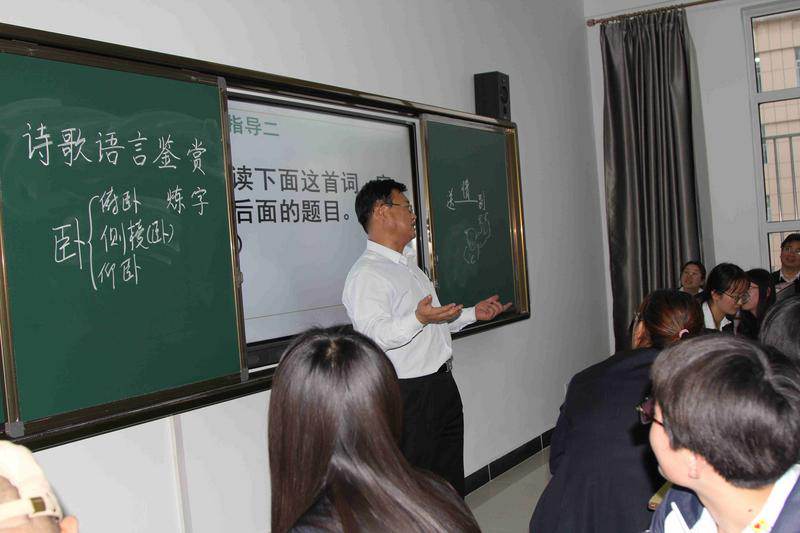 诗歌语言鉴赏
俯卧 炼字
卧 侧撑(卧)
仰卧
指导二
读下面这首词,
后面的题目。
送情别